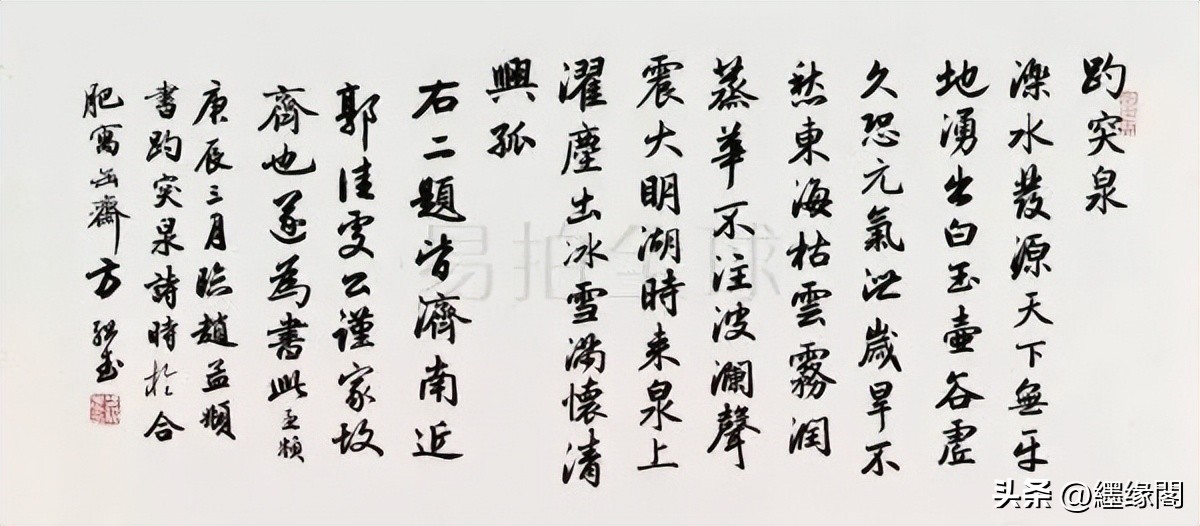 趵突泉
濼水發源天下無平
地湧出白玉壺谷虛
久恐元氣泄歲旱不
愁東海枯雲霧潤
蒸華不注波瀾聲
震大明湖時來泉上
濯塵出冰雪滿懷清
興孤
右二題皆濟南近
郭佳處公謹家故
齊也遂為書此孟頫
庚辰三月臨趙孟頫
書趵突泉詩時於合
肥寓 齋方
易拍全球
头条 @纆缘閣